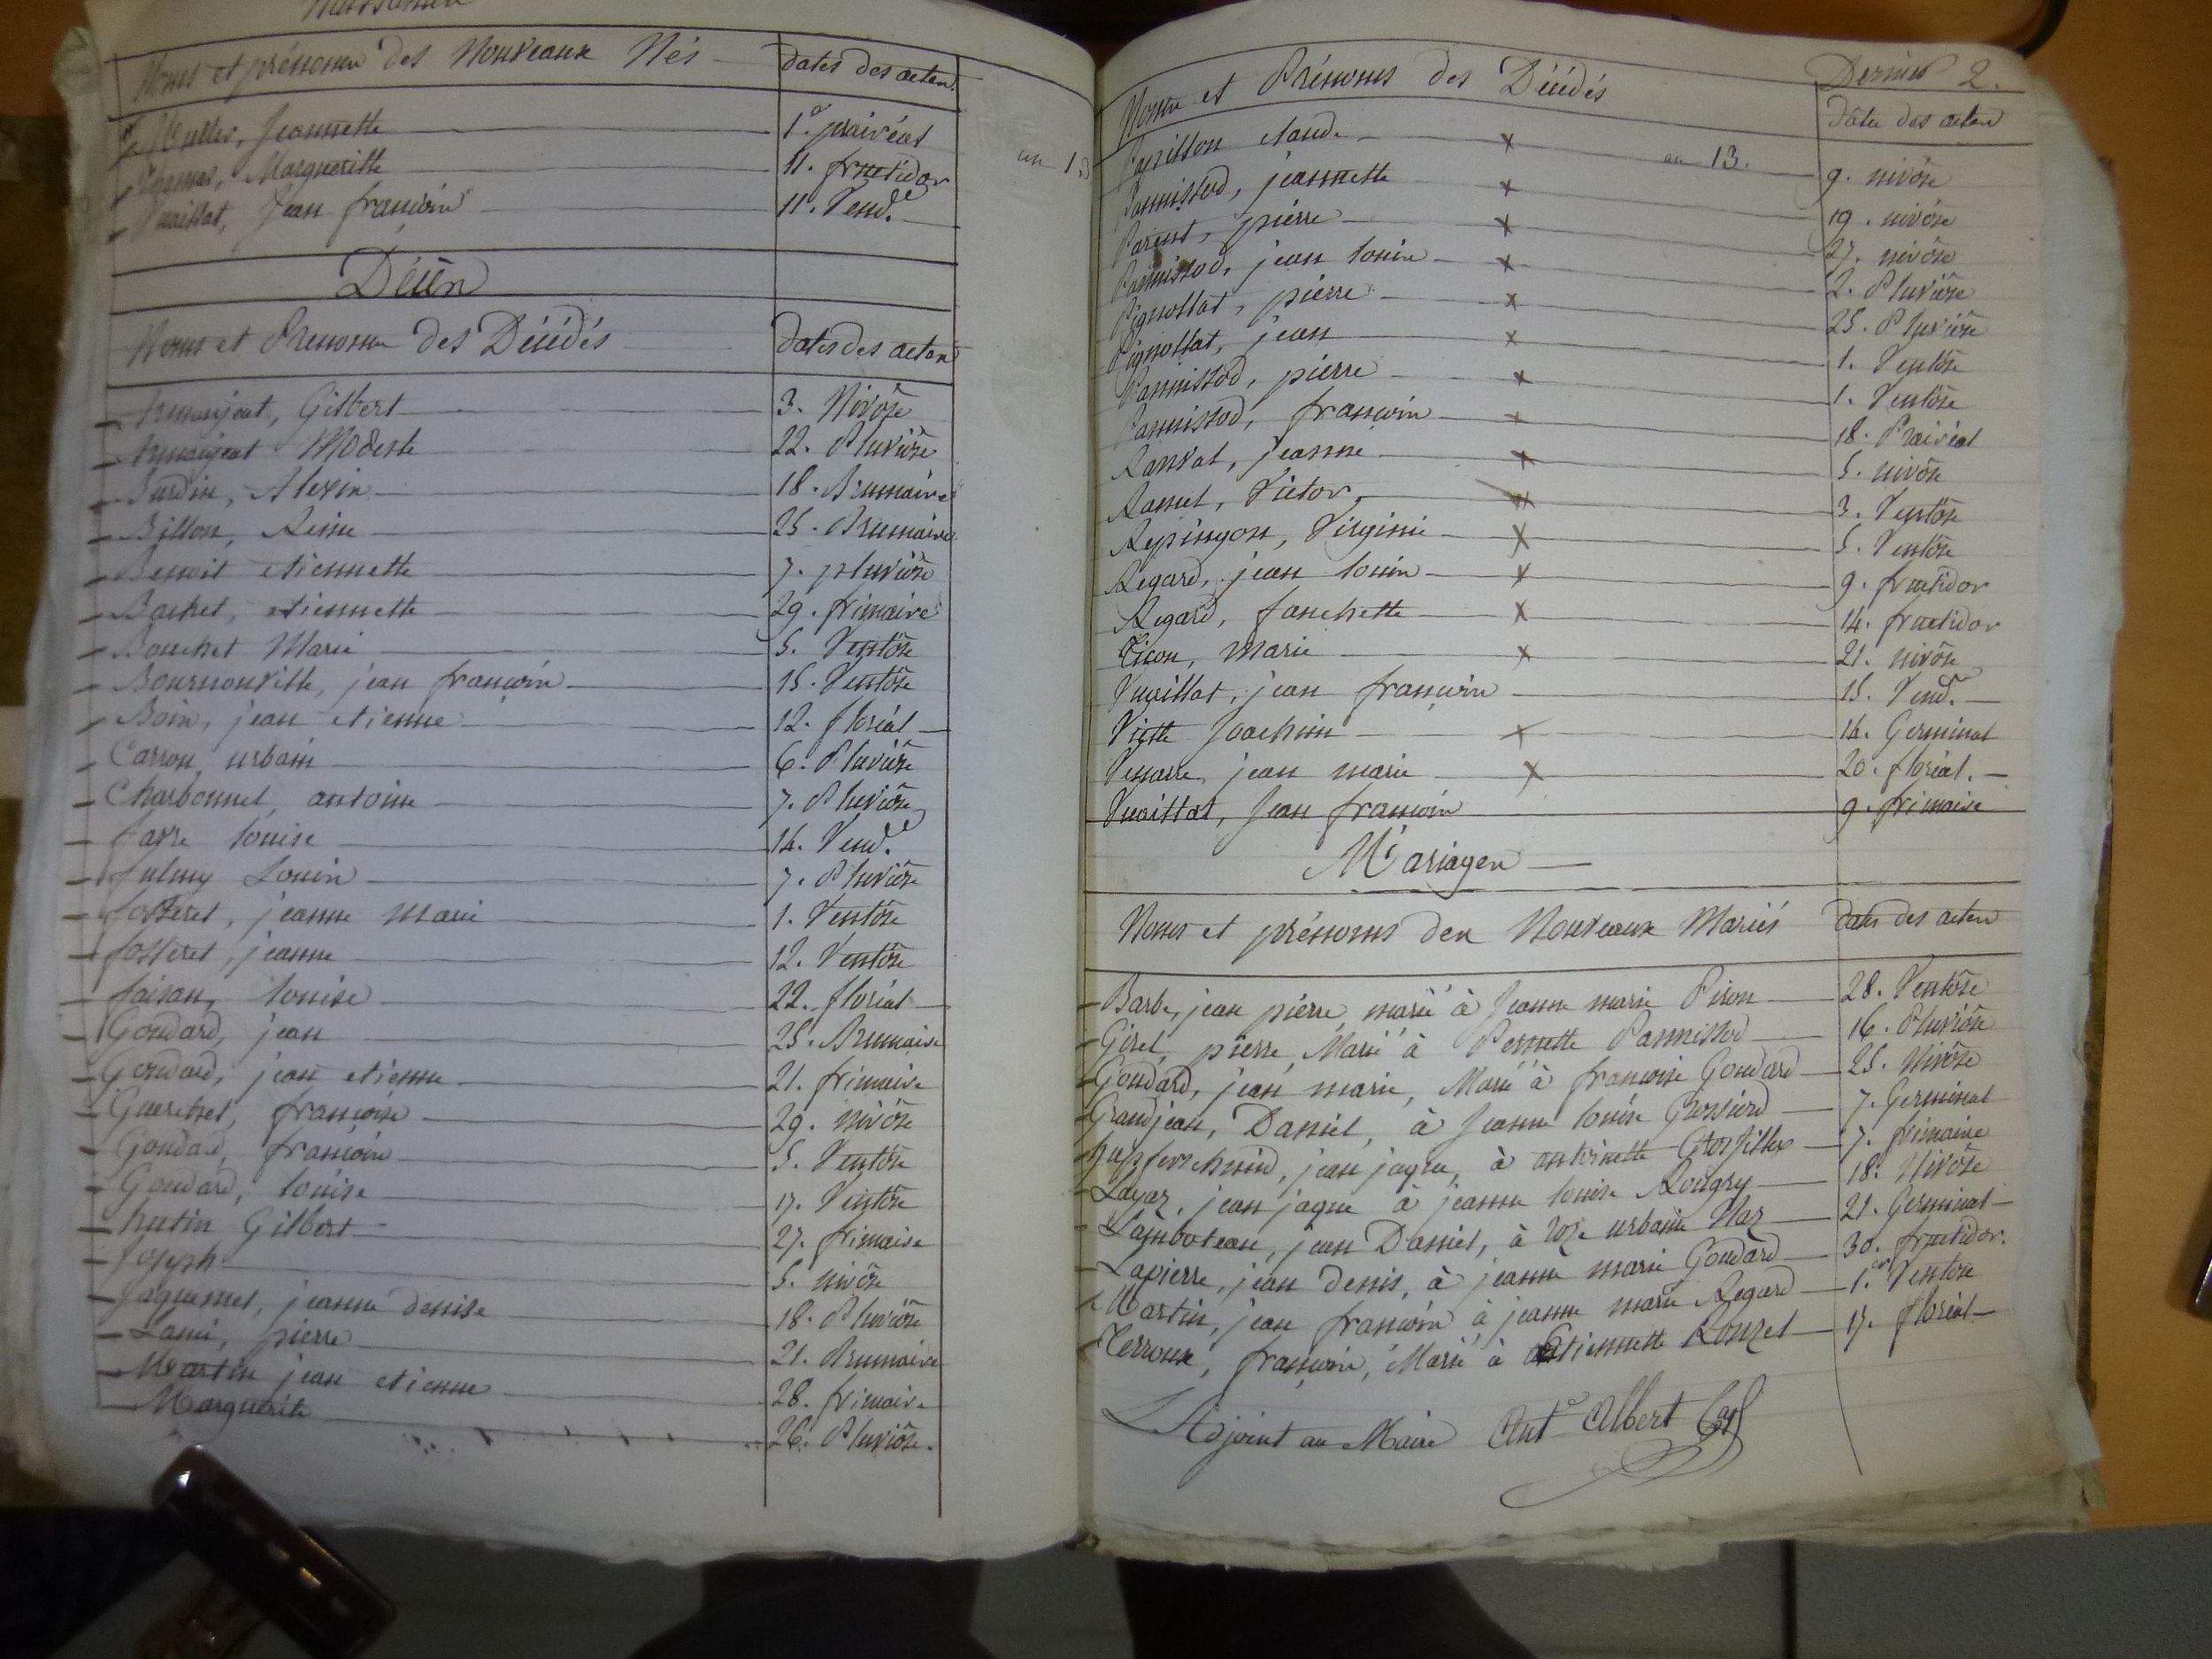 Noms et prénoms des Nouveaux Nés dates des actes
Muller, Jeannette 1.er prairéal
Thomas, Margueritte 11. fructidor
Vuaillat, Jean françois 11. Vend.re
Décès
Noms et Prénoms des Décédés dates des actes
Armanjeat, Gilbert 3. Nivôse
Armanjeat Modeste 22. Pluviôse
Burdin, Alexis 18. Brumaire
Billon, Reine 25. Brumaire
Benoit etiennette 7. pluviôse
Bachet, etiennette 29. frimaire
Bouchet Marie 5. Ventôse
Bournonville, jean françois 15. Ventôse
Boin, jean etienne 12. floréal
Carron urbain 6. Pluviôse
Charbonnel, antoine 7. Pluviôse
favre louise 14. Vend.re
fulmy Louis 7. Pluviôse
fosseret, jeanne marie 1. Ventôse
fosseret, jeanne 12. Ventôse
faisan, louise 22. floréal
Goudard, jean 25. Brumaire
Goudard, jean etienne 21. frimaire
Guerchet, françoise 29. nivôse
Goudard, françois 5. Ventôse
Goudard, louise 17. Ventôse
hutin Gilbert 27. frimaire
Joseph 5. nivôse
Jaquemet, jeanne denise 18. Pluviôse
Lami, pierre 21. Brumaire
Martin jean etienne 28. frimaire
Marguerite 26. Pluviôse
an 13
Dernier 2.
Noms et Prénoms des Décédés date des actes
Papillon claude x an 13. 9. nivôse
Pannissod, jeannette x 19. nivôse
Parent, pierre x 27. nivôse
Pannissod, jean louis x 2. Pluviôse
Pignollat, pierre x 25. Pluviôse
Pignollat, jean x 1. Ventôse
Pannissod, pierre x 1. Ventôse
Pannissod, françois x 18. Prairéal
Ravat, jeanne x 5. nivôse
Ramel, Victor, x 3. Ventôse
Repingon, Virginie x 5. Ventôse
Regard, jean louis x 9. fructidor
Regard, fanchette x 14. fructidor
Ticon, marie x 21. nivôse
Vuaillat, jean françois 15. Vend.re
Viette Joachim x 14. Germinal
Venarre jean marie x 20. floréal.
Vuaillat, Jean françois 9. frimaire
Mariages
Noms et prénoms des Nouveaux Mariés dates des actes
Barbe, jean pierre marié à Jeanne marie Piron 28. Ventôse
Girel, pierre, Marié à Pernette Pannissod 16. Pluviôse
Goudard, jean marie, Marié à françoise Goudard 25. Nivôse
Grandjean, Daniel, à Jeanne louise Grossiord 7. Germinal
hupferschmid, jean jaque, à antoinette Grosfillex 7. frimaire
Layaz, jean jaque à jeanne louise Rougny 18. Nivôse
Lamboteau, jean Daniel, à rose urbanie Naz 21. Germinal
Lapierre, jean denis, à jeanne marie Goudard 30. fructidor.
Martin, jean françois à jeanne marie Regard 1.er Ventôse
Terroux, françois, Marié à Etiennette Rouzet 17. floréal
L'Adjoint au Maire Ant.e Albert